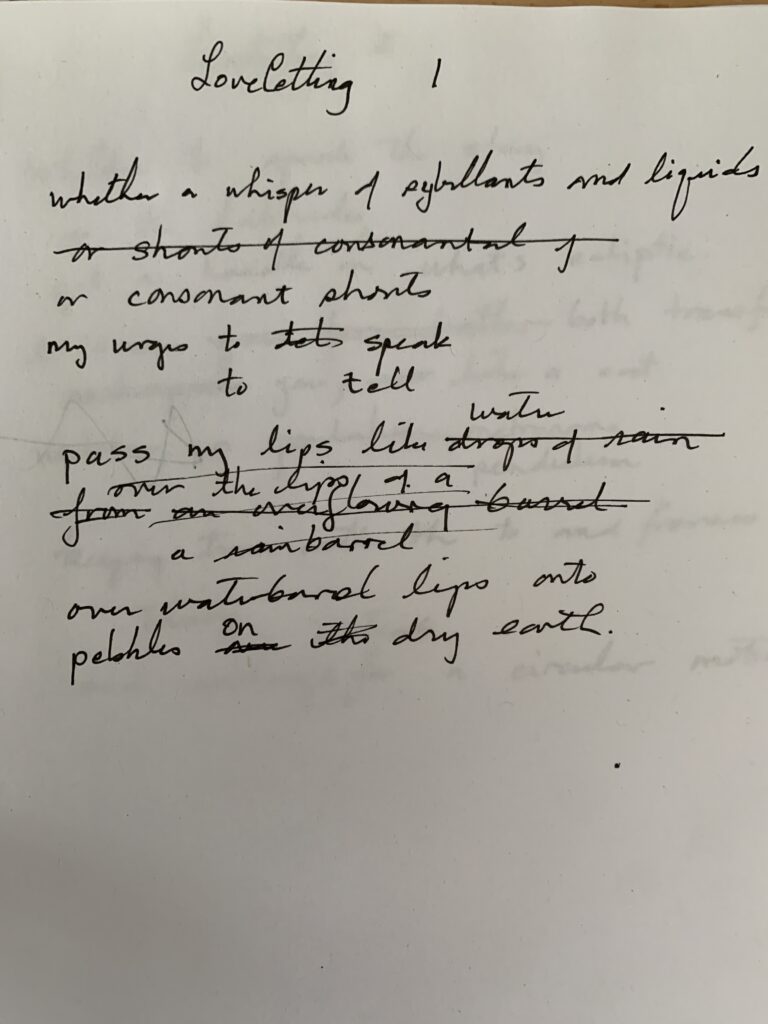 Loveletting 1
whether a whisper of sybillants and liquids
or shouts of consonantal f
or consonant shouts
my urges to tets speak
to tell
water
pass my lips like drops of rain
over the lips of a
from an overflowing barrel
a rainbarrel
over waterbarrel lips onto
pebbles on dry earth.